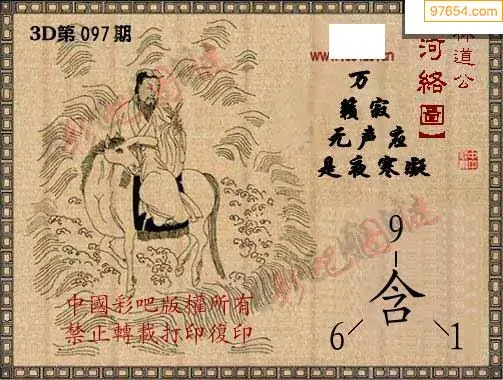 97654.com
3D第 097 期
林道公
河络圖】
万
籁寂
无声应
是夜寒凝
9
含
6
1
中國彩吧版權所有
禁止轉載打印復印